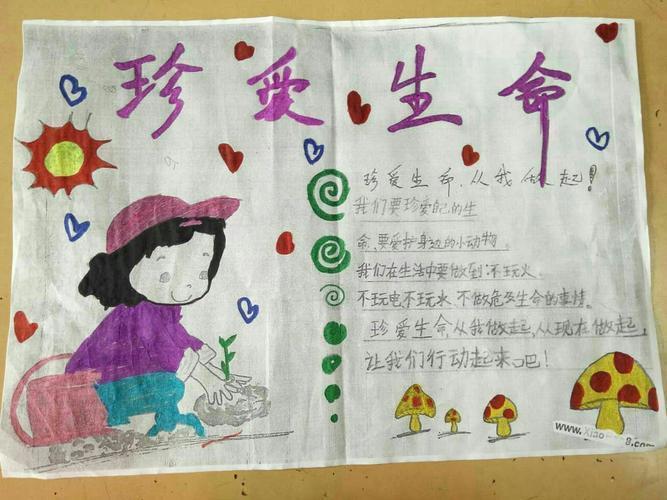 珍爱生命
珍爱生命,从我做起!
我们要珍爱自己的生
命,要爱护身边的小动物。
我们在生活中要做到:不玩火
不玩电不玩水 不做危及生命的事情。
珍爱生命从我做起,从现在做起,
让我们行动起来吧!